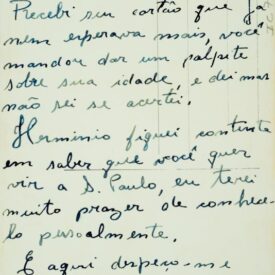 Recebi seu cartão que já
nem esperava mais, você
mandou dar um palpite
sobre sua idade, e dei mas
não sei se acertei.
Herminio fiquei contente
em saber que você quer
vir a S. Paulo, eu terei
muito prazer de conhece-
lo pessoalmente.
E aqui despeço-me